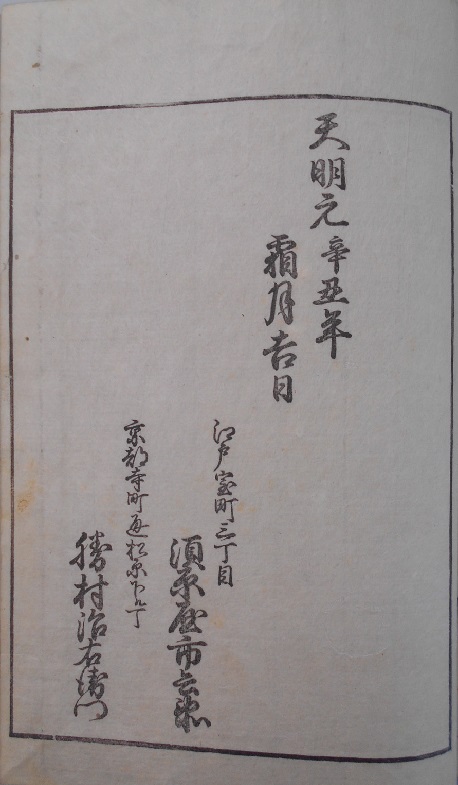 天明元辛丑年
霜月吉日
江戸室町三丁目
須原屋市兵衛
京都寺町通松原下ル丁
勝村治右衛門